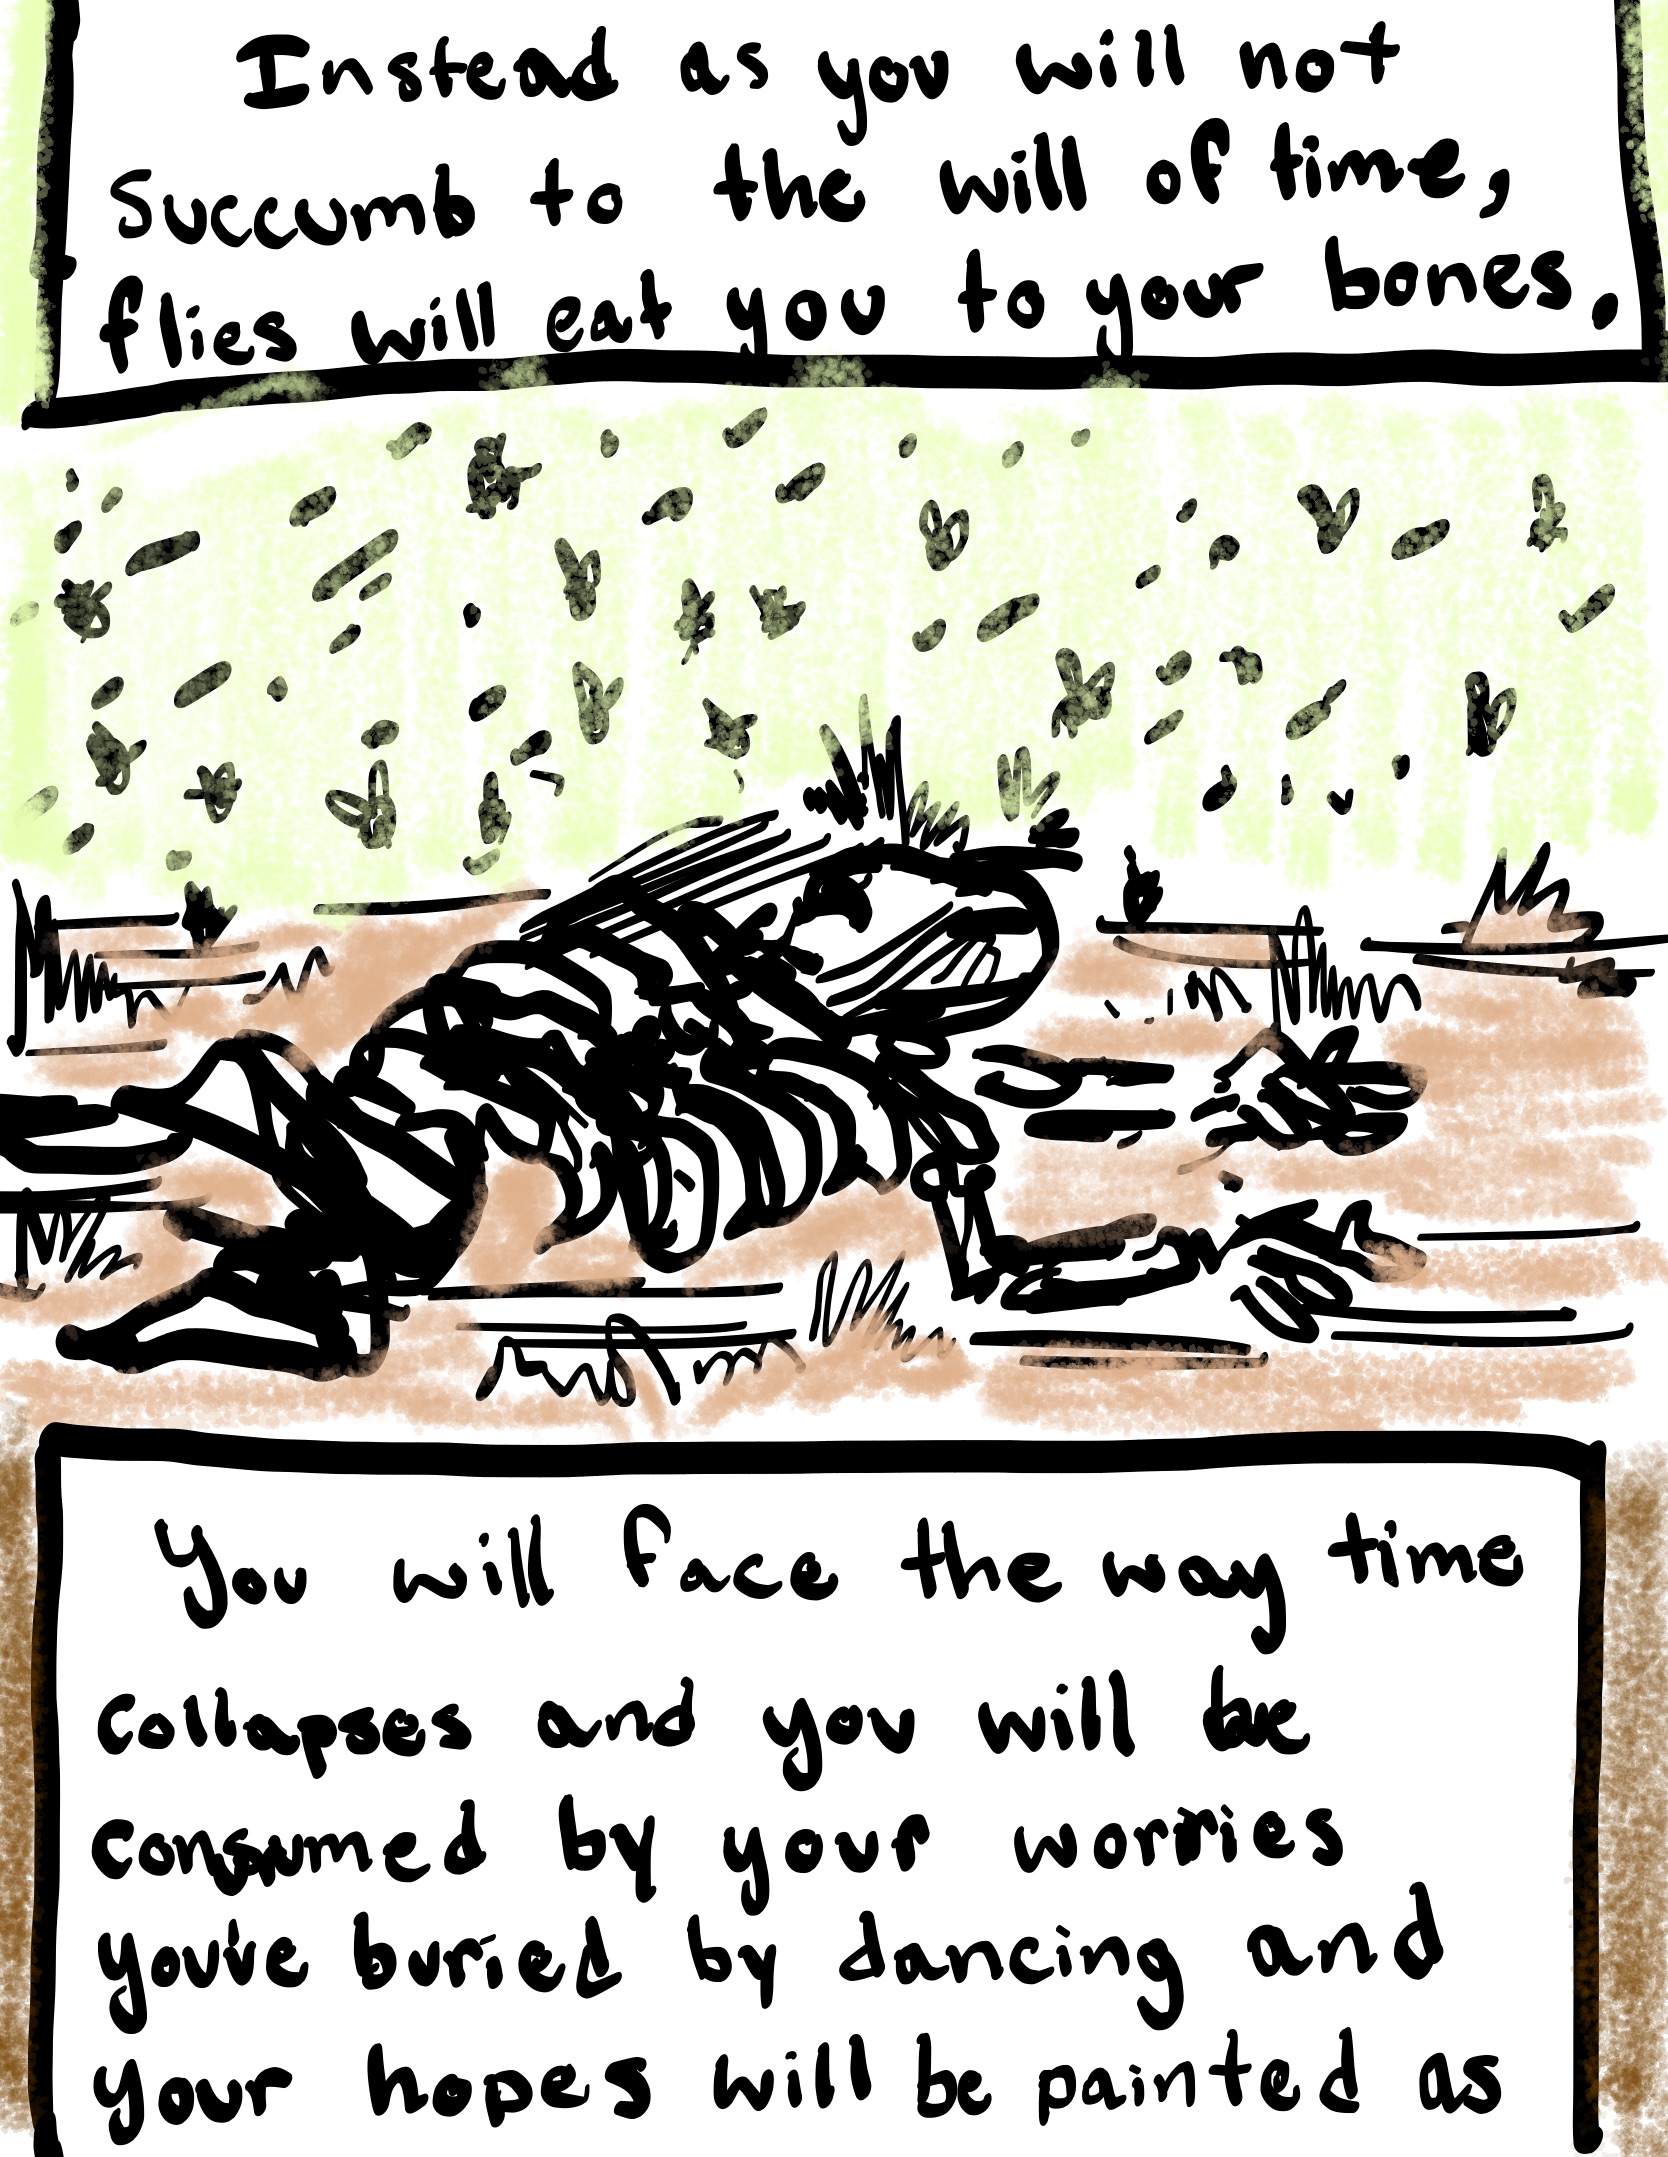 Instead as you will not
Succumb to the will of time,
flies will eat you to your bones.
You will face the way time
Collapses and you will be
consumed by your worries
you've buried by dancing and
your hopes will be painted as